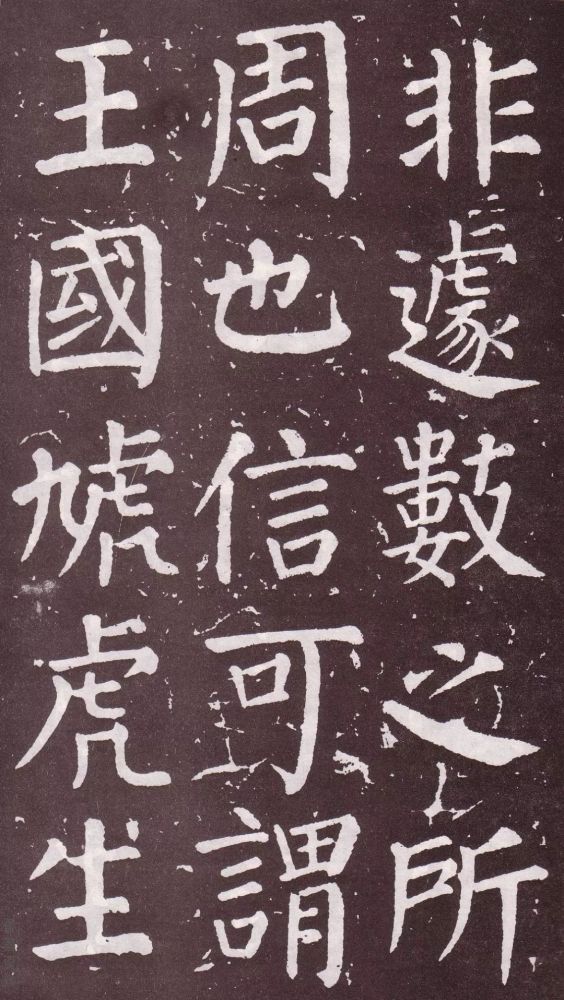 非遽數之所
周也信可謂
王國虓虎生